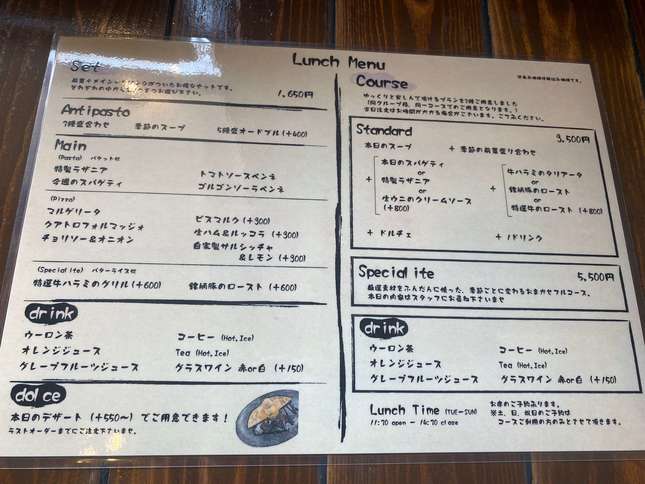 Lunch Menu
Set
1,650円
Antipasto
3種盛合わせ 季節のスープ 5種盛オードブル (+400)
Main
(Pasta) バケット付
特製ラザニア トマトソースペンネ
今週のスパゲティ ゴルゴンゾーラペンネ
(Pizza)
マルゲリータ ビスマルク (+300)
クアトロフォルマッジョ 生ハム&ルッコラ (+300)
チョリソー&オニオン 自家製サルシッチャ
&レモン (+300)
(Specialite) バターライス付
特選牛ハラミのグリル (+600) 銘柄豚のロースト (+600)
drink
ウーロン茶 コーヒー (Hot,Ice)
オレンジジュース Tea (Hot,Ice)
グレープフルーツジュース グラスワイン 赤or白 (+150)
dolce
本日のデザート (+550〜) でご用意できます!
ラストオーダーまでにご注文下さいませ。
Course
ゆっくりと楽しんで頂けるプランを2種ご用意しました
(同グループ様、同一コースでのご用意となります。)
当日注文はお時間がかかる場合がございます。ご了承ください。
Standard 3,500円
本日のスープ + 季節の前菜盛り合わせ
+
本日のスパゲティ
or
特製ラザニア
or
生ウニのクリームソース
(+800)
+
牛ハラミのタリアータ
or
銘柄豚のロースト
or
特選牛のロースト (+800)
+ ドルチェ + 1ドリンク
Specialite 5,500円
厳選素材をふんだんに使った、季節ごとに変わるおまかせフルコース。
本日の内容はスタッフにお尋ね下さいませ
drink
ウーロン茶 コーヒー (Hot,Ice)
オレンジジュース Tea (Hot,Ice)
グレープフルーツジュース グラスワイン 赤or白 (+150)
Lunch Time (TUE-SUN)
11:30 open - 14:30 close
お席のご予約承ります。
※土、日、祝日のご予約は
コースご利用の方のみとさせて頂きます。